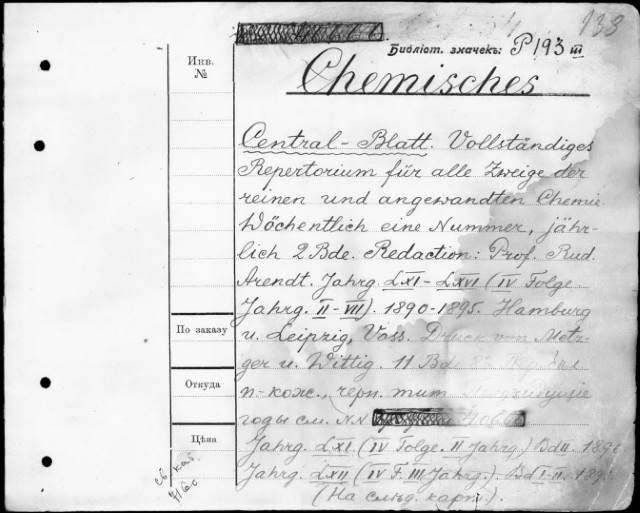 133
Библіот. значекъ: P193 III
Инв.
№
Chemisches
Central-Blatt. Vollständiges
Repertorium für alle Zweige der
reinen und angewandten Chemie.
Wöchentlich eine Nummer, jähr-
lich 2 Bde. Redaction: Prof. Rud.
Arendt. Jahrg. LXI-LXVI (IV Folge
Jahrg. II-VII). 1890-1895. Hamburg
По заказу
u. Leipzig, Voss. Druck von Metz-
ger u. Wittig. 11 Bd.
Откуда
п-кож., черн. тит.
годы см. NN
Цѣна
Jahrg. LXI (IV Folge. II Jahrg.) Bd II. 1890
Jahrg. LXII (IV F. III Jahrg.). Bd I-II. 189
(На слѣд. карт.).